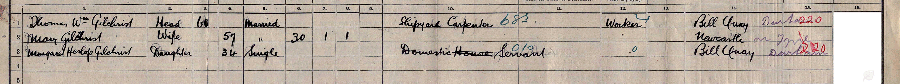 Thomas Wm Gilchrist Head 60 Married Shipyard Carpenter 683 Worker Bill Quay Durham 220
Mary Gilchrist Wife 59 " 30 1 1 Newcastle on Tyne
Margaret Heslop Gilchrist Daughter 34 Single Domestic House Servant 0 Bill Quay Durham 220